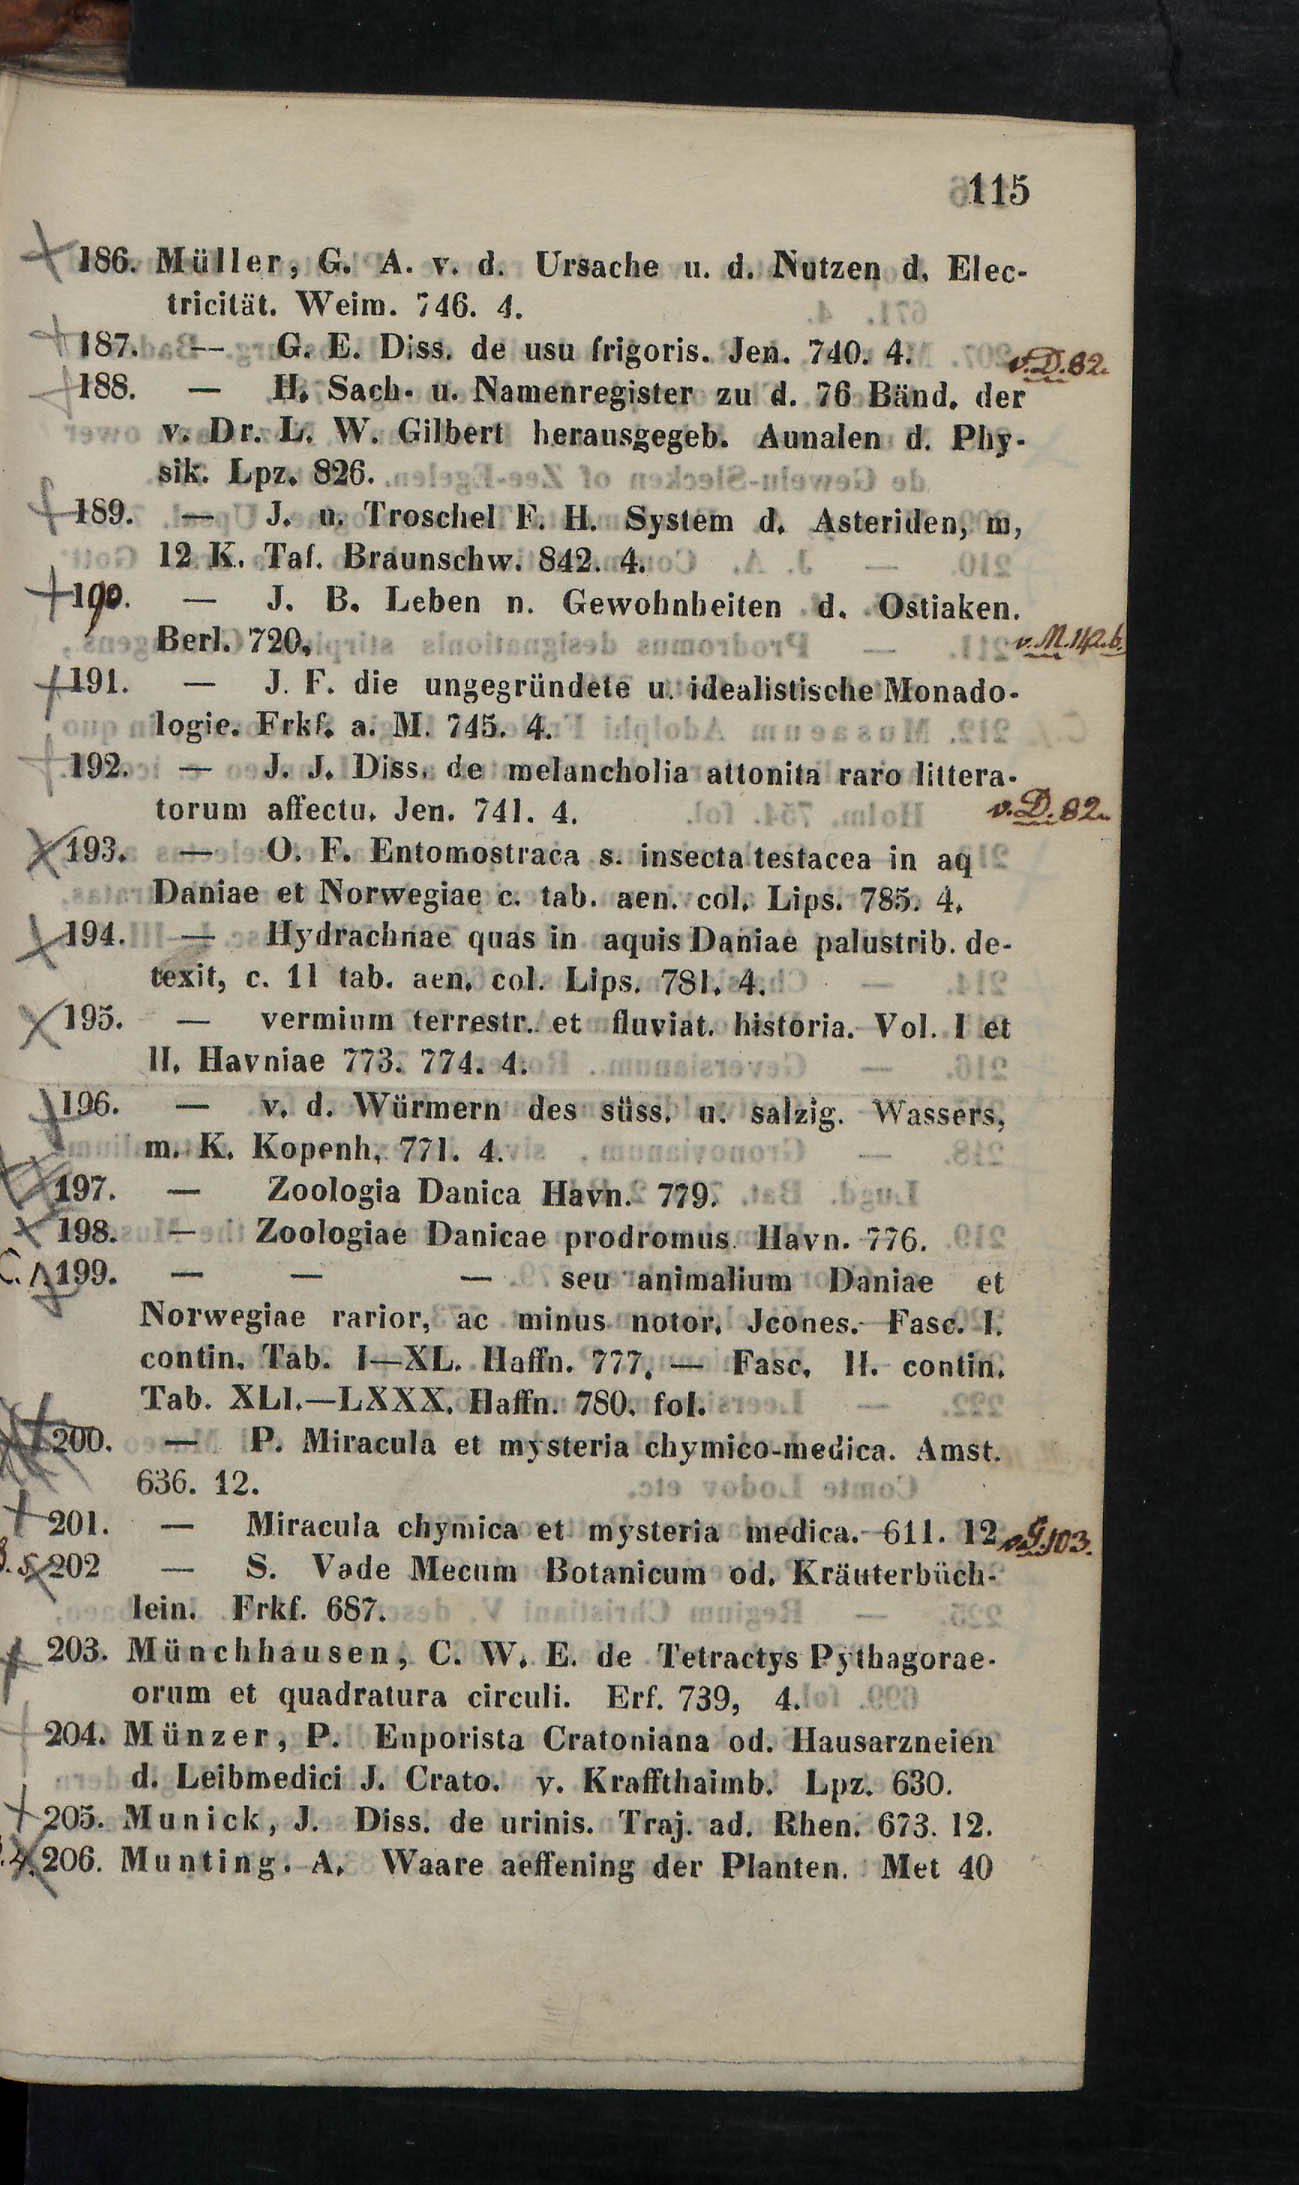 115
186. Müller, G. A. v. d. Ursache u. d. Nutzen d. Elec-
tricität. Weim. 746. 4.
187. — G. E. Diss. de usu frigoris. Jen. 740. 4. v. D. 82.
188. — H. Sach- u. Namenregister zu d. 76 Bänd. der
v. Dr. L. W. Gilbert herausgegeb. Aunalen d. Phy-
sik. Lpz. 826.
189. — J. u. Troschel F. H. System d. Asteriden, m,
12 K. Taf. Braunschw. 842. 4.
190. — J. B. Leben n. Gewohnheiten d. Ostiaken.
Berl. 720. v. M. 142. b.
191. — J. F. die ungegründete u. idealistische Monado-
logie. Frkf. a. M. 745. 4.
192. — J. J. Diss. de melancholia attonita raro littera-
torum affectu. Jen. 741. 4. v. D. 82.
193. — O. F. Entomostraca s. insecta testacea in aq
Daniae et Norwegiae c. tab. aen. col. Lips. 785. 4.
194. — Hydrachnae quas in aquis Daniae palustrib. de-
texit, c. 11 tab. aen. col. Lips. 781. 4.
195. — vermium terrestr. et fluviat. historia. Vol. I et
II. Havniae 773. 774. 4.
196. — v. d. Würmern des süss. u. salzig. Wassers,
m. K. Kopenh. 771. 4.
197. — Zoologia Danica Havn. 779.
198. — Zoologiae Danicae prodromus. Havn. 776.
199. — — — seu animalium Daniae et
Norwegiae rarior, ac minus notor. Jcones. Fasc. I.
contin. Tab. I—XL. Haffn. 777. — Fasc. II. contin.
Tab. XLI.—LXXX. Haffn. 780. fol.
200. — P. Miracula et mysteria chymico-medica. Amst.
636. 12.
201. — Miracula chymica et mysteria medica. 611. 12 v. G. 103.
202 — S. Vade Mecum Botanicum od. Kräuterbüch-
lein. Frkf. 687.
203. Münchhausen, C. W. E. de Tetractys Pythagorae-
orum et quadratura circuli. Erf. 739, 4.
204. Münzer, P. Euporista Cratoniana od. Hausarzneien
d. Leibmedici J. Crato. v. Kraffthaimb. Lpz. 630.
205. Munick, J. Diss. de urinis. Traj. ad. Rhen. 673. 12.
206. Munting. A. Waare aeffening der Planten. Met 40